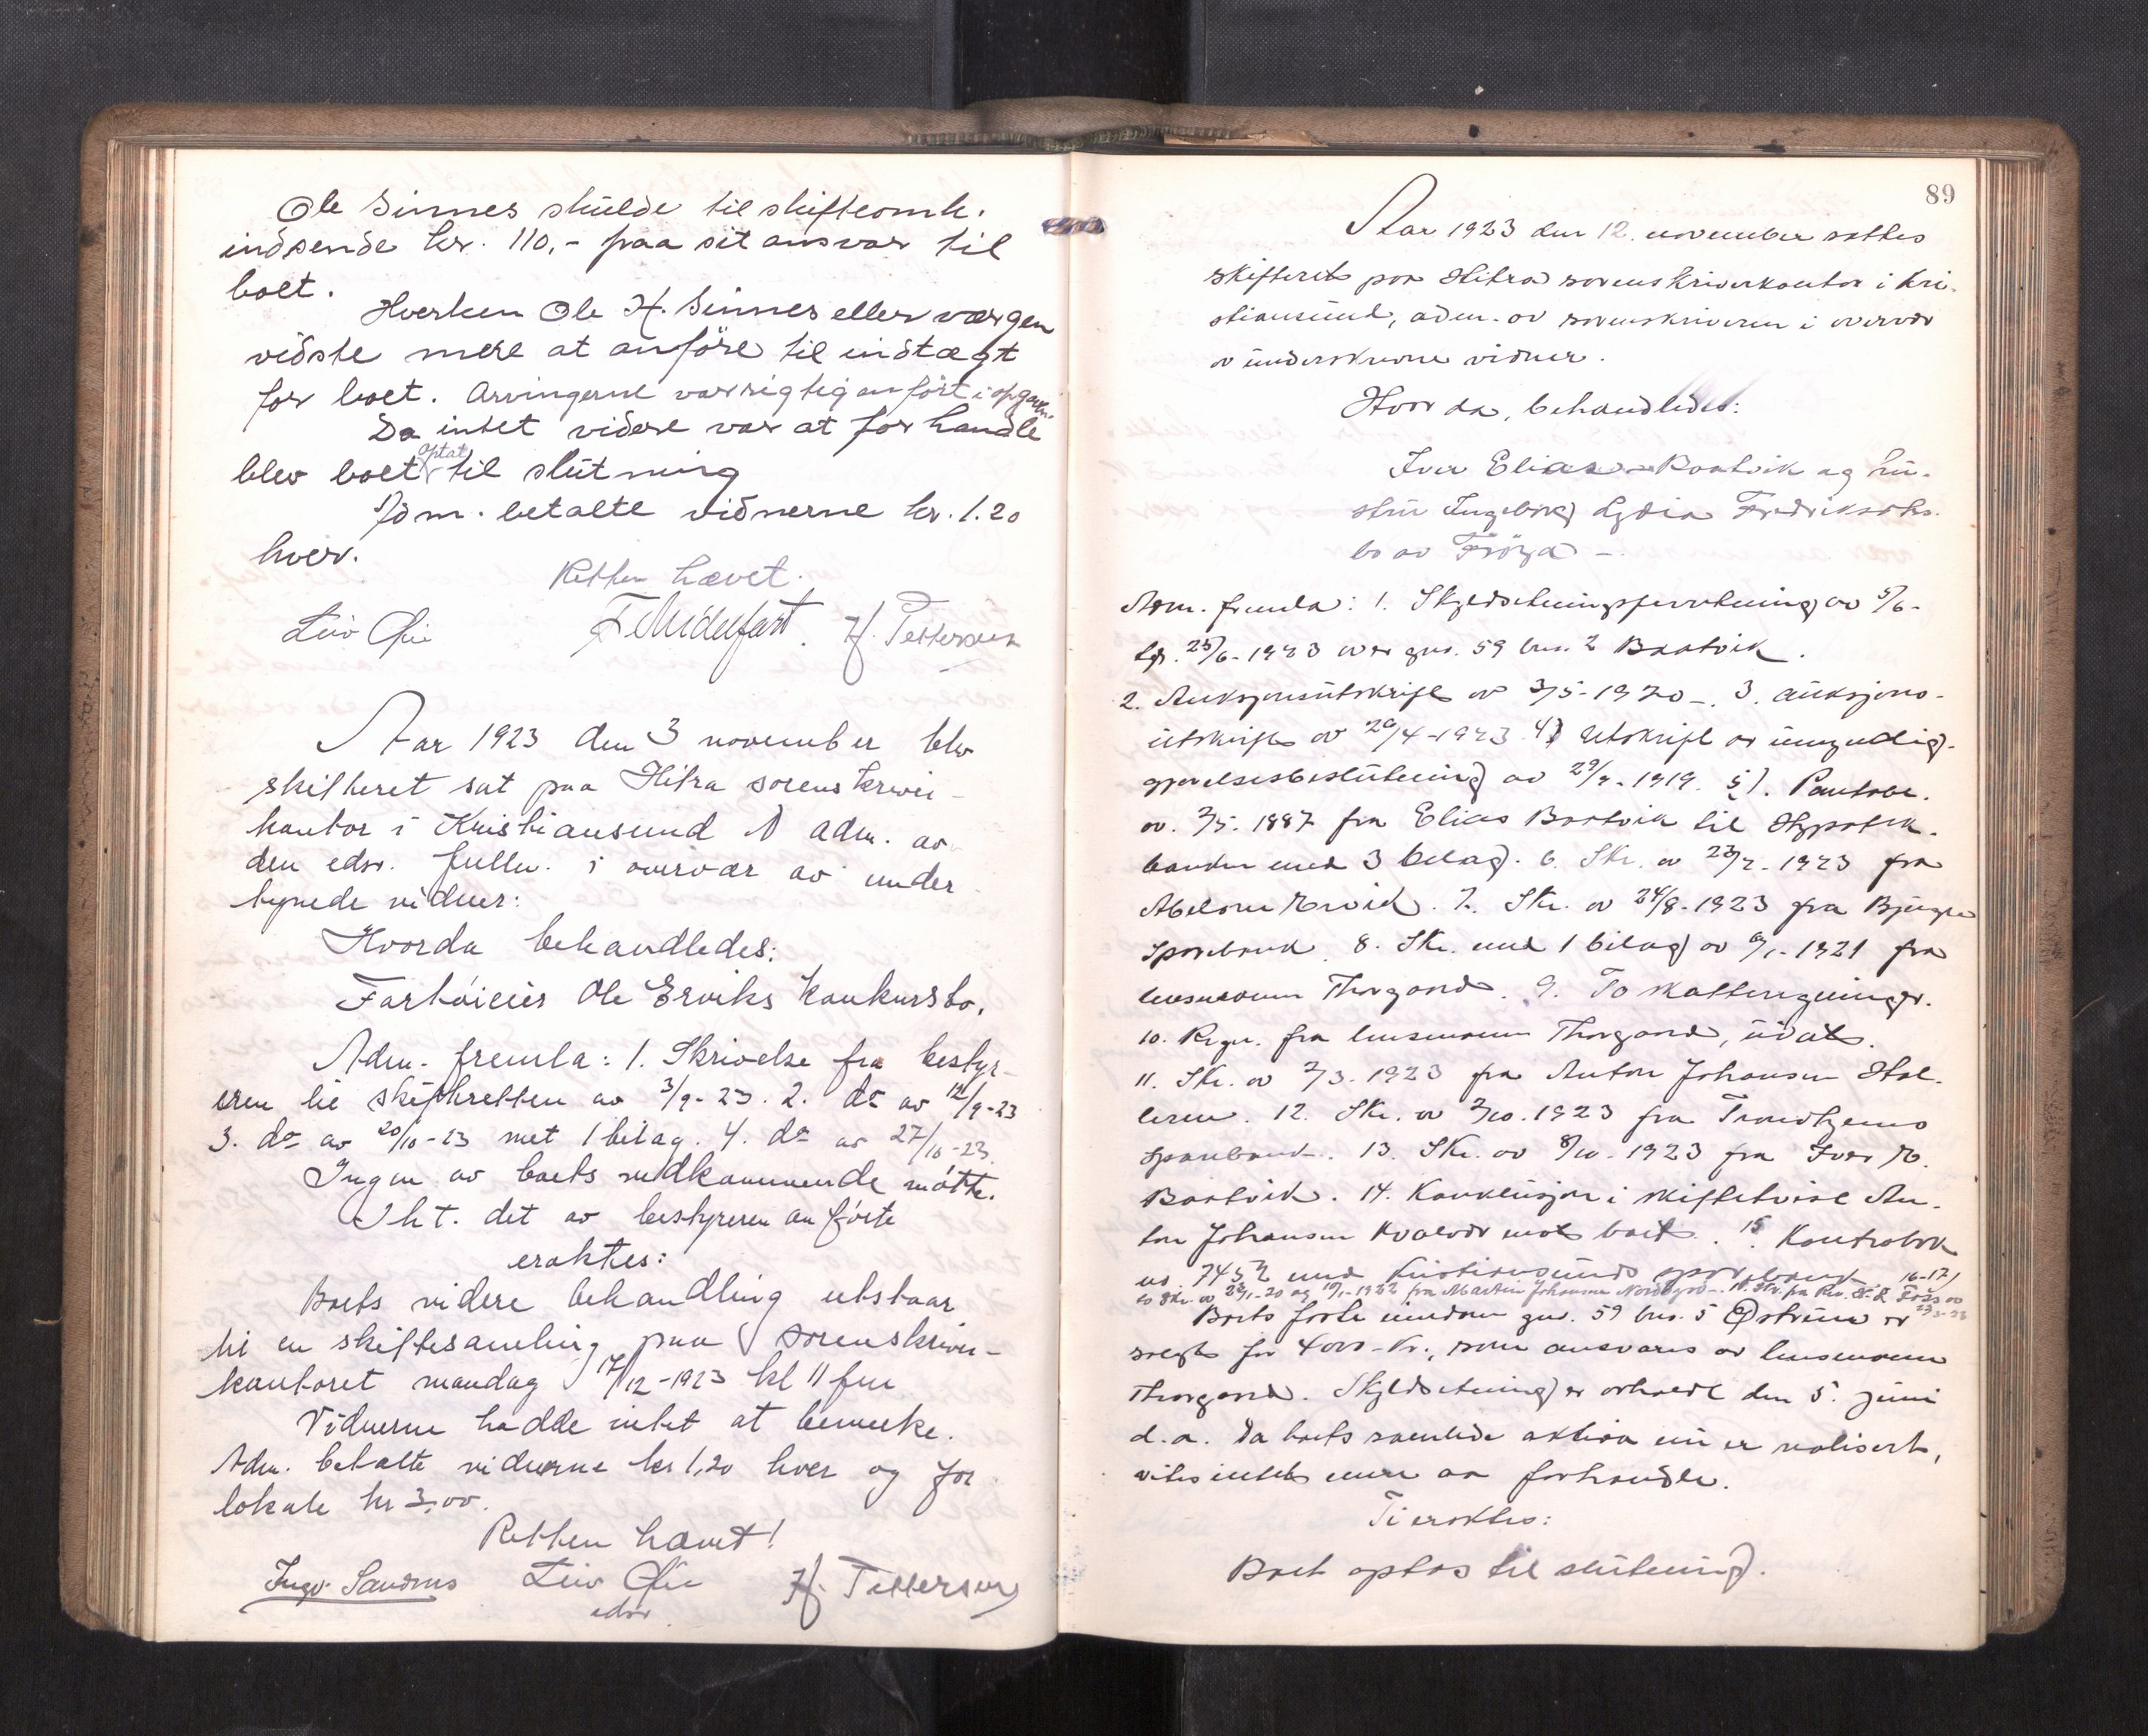 Ole Sinnes skulde til skifteomk.
indsende kr. 110,- paa sit ansvar til
boet.
Hverken Ole H. Sinnes eller værgen
vidste mere at anføre til indtægt
for boet. Arvingerne var rigtig anført i opgaven.
Da intet videre var at forhandle
blev boet optat til slutning
Adm. betalte vidnerne kr. 1.20
hver.
Retten hævet.
H. Pettersen
Aar 1923 den 3 november blev
skifteret sat paa Hitra sorenskriver-
kontor i Kristiansund N adm. av
den edsv. fullm. i overvær av under
tegnede vidner:
Hvorda behandledes:
Fartøieier Ole Erviks konkursbo.
Adm. fremla: 1. Skrivelse fra bestyr-
eren til skifteretten av 3/9-23. 2. do av 12/9-23
3. do av 20/10-23 met 1 bilag. 4. do av 27/10-23.
Ingen av boets vedkommende møtte.
I h t. det av bestyreren anførte
eraktes:
Boets videre behandling utstaar
til en skiftesamling paa sorenskriver-
kontoret mandag 17/12-1923 kl 11 fm
Vidnerne hadde intet at bemerke.
Adm. betalte vidnerne kr 1,20 hver og for
lokale kr 3,00.
Retten hævet!
Ingv. Sandnes H. Pettersen
edsv.
89
Aar 1923 den 12. november sattes
skifteret paa Hitra sorenskriverkontor i Kri-
stiansund, adm. av sorenskriveren i overvær
av underskrevne vidner.
Hvor da, behandledes:
Iver Elias Baatvik og hu-
stru Ingeborg Lydia Fredriksdts.
bo av Frøya -.
Adm. fremla: 1. Skyldsetningsforretning av 5/6-
tgl. 25/6-1923 over gnr. 59 bnr. 2 Baatvik.
2. Auksjonsutskrift av 3/5-1920 -. 3. auksjons-
utskrift av 20/4-1923 4) Utskrift av umyndig-
gjørelsesbeslutning av 29/9-1919. 5). Panteobl.
av. 7/5. 1887 fra Elias Baatvik til Hypotek-
banken med 3 bilag. 6. Skr. av 23/7-1923 fra
Abelone Ervik. 7. Skr. av 24/8-1923 fra Bjugn
Sparebank. 8. Skr. med 1 bilag av 6/1-1921 fra
lensmann Thorgard. 9. To skatteregninger.
10. Regn. fra lensmann Thorgard, udat.
11. Skr. av 2/3. 1923 fra Anton Johansen Hal-
leren. 12. Skr. av 2/10. 1923 fra Trondhjems
sparebank. 13. Skr. av 8/10-1923 fra Iver M.
Baatvik. 14. Konklusjon i skiftetvist An-
ton Johansen Kvalvær mot boet. 15. Kontrabok
nr. 7452 med Kristiansunds sparebank 16-17)
to Skr. av 28/1-20 og 19/1-1922 fra Martin Johansen
Boets faste eiendom gnr. 59 bnr. 5 Østrum er
solgt for 4000 - kr., som ansvares av lensmann
Thorgard. Skyldsetning er avholdt den 5. juni
d.a. Da boets samlede aktiva nu er realisert,
vites intet mere aa forhandle.
Ti eraktes:
Boet optas til slutning.